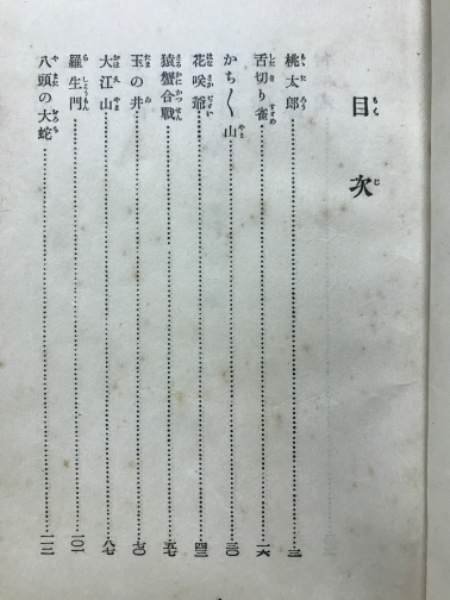 目次
桃太郎……三
舌切り雀……一六
かち〱山……三〇
花咲爺……四三
猿蟹合戰……五七
玉の井……七〇
大江山……八七
羅生門……一〇一
八頭の大蛇……一一二